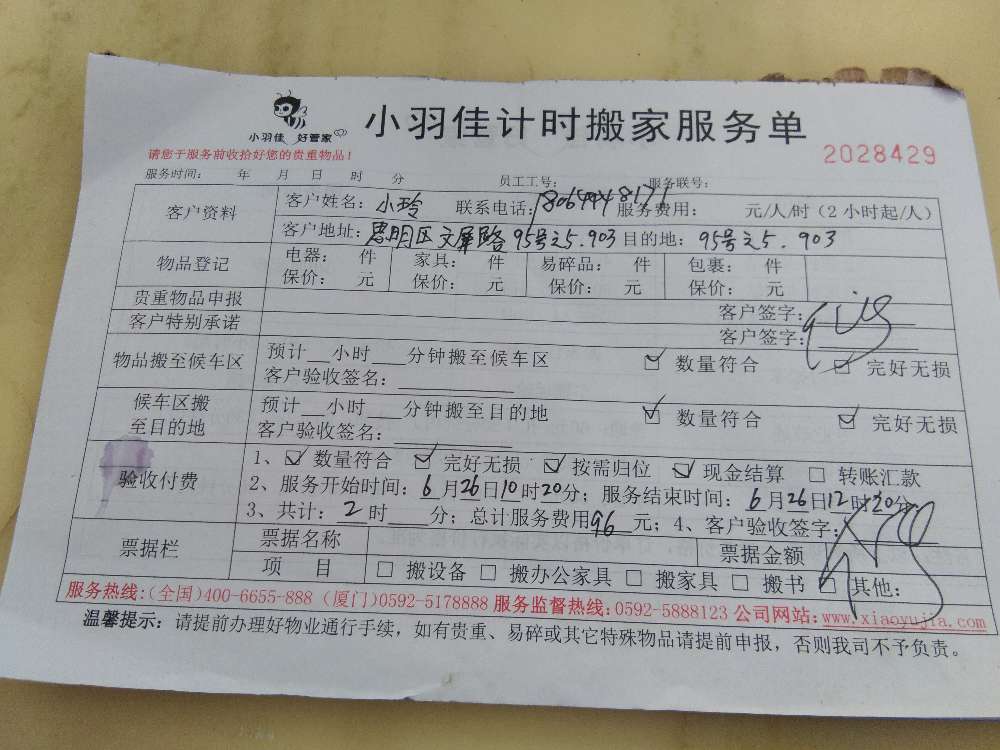 小羽佳 好管家
小羽佳计时搬家服务单
2028429
请您于服务前收拾好您的贵重物品!
服务时间: 年 月 日 时 分 员工工号: 服务联号:
客户资料 客户姓名: 小玲 联系电话: 服务费用: 元/人/时(2小时起/人)
客户地址: 思明区文屏路95号之5.903 目的地: 95号之5.903
物品登记 电器: 件 家具: 件 易碎品: 件 包裹: 件
保价: 元 保价: 元 保价: 元 保价: 元
贵重物品申报 客户签字:
客户特别承诺 客户签字:
物品搬至候车区 预计__小时___分钟搬至候车区 ☑ 数量符合 ☑ 完好无损
客户验收签名:
候车区搬至目的地 预计__小时___分钟搬至目的地 ☑ 数量符合 ☑ 完好无损
客户验收签名:
验收付费 1、☑ 数量符合 ☑ 完好无损 ☑ 按需归位 ☑ 现金结算 □ 转账汇款
2、服务开始时间: 6月26日10时20分; 服务结束时间: 6月26日12时20分
3、共计: 2时___分; 总计服务费用96元; 4、客户验收签字:
票据栏 票据名称 票据金额
项 目 □ 搬设备 □ 搬办公家具 □ 搬家具 □ 搬书 □ 其他:
服务热线:(全国)400-6655-888 (厦门)0592-5178888 服务监督热线:0592-5888123 公司网站:www.xiaoyujia.com
温馨提示: 请提前办理好物业通行手续, 如有贵重、易碎或其它特殊物品请提前申报, 否则我司不予负责。